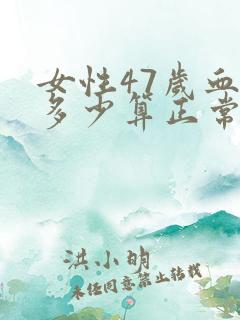 女性47歲血
多少算正常
洪小明
未经同意禁止转载